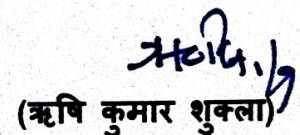 (ऋषि कुमार शुक्ला)